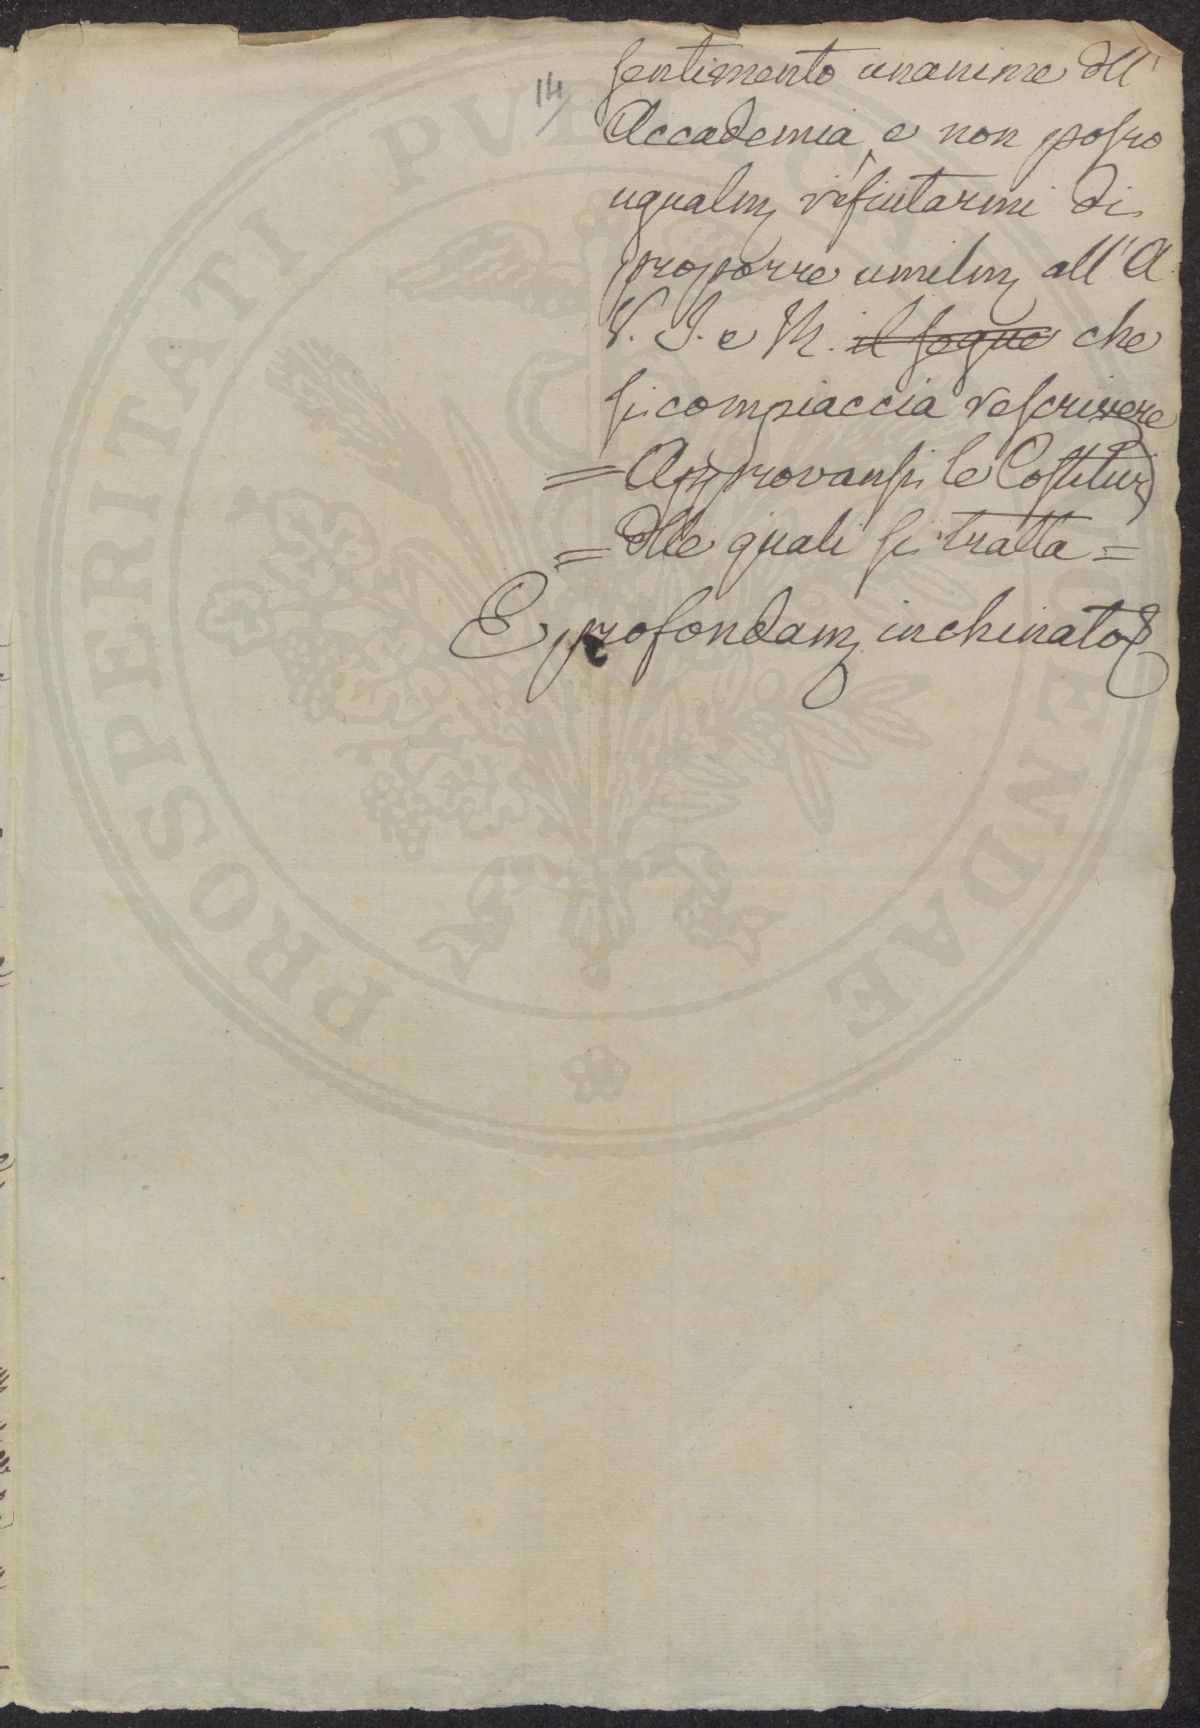 14
sentimento unanime dell'
Accademia, e non posso
ugualm. rifiutarmi di
proporre umilm. all'A.
V. I. e R. il segue che
si compiaccia rescrivere
= Approvansi le Costituz.
= delle quali si tratta =
E profondam. inchinato
PROSPERITATI PVBLICAE AVGENDAE